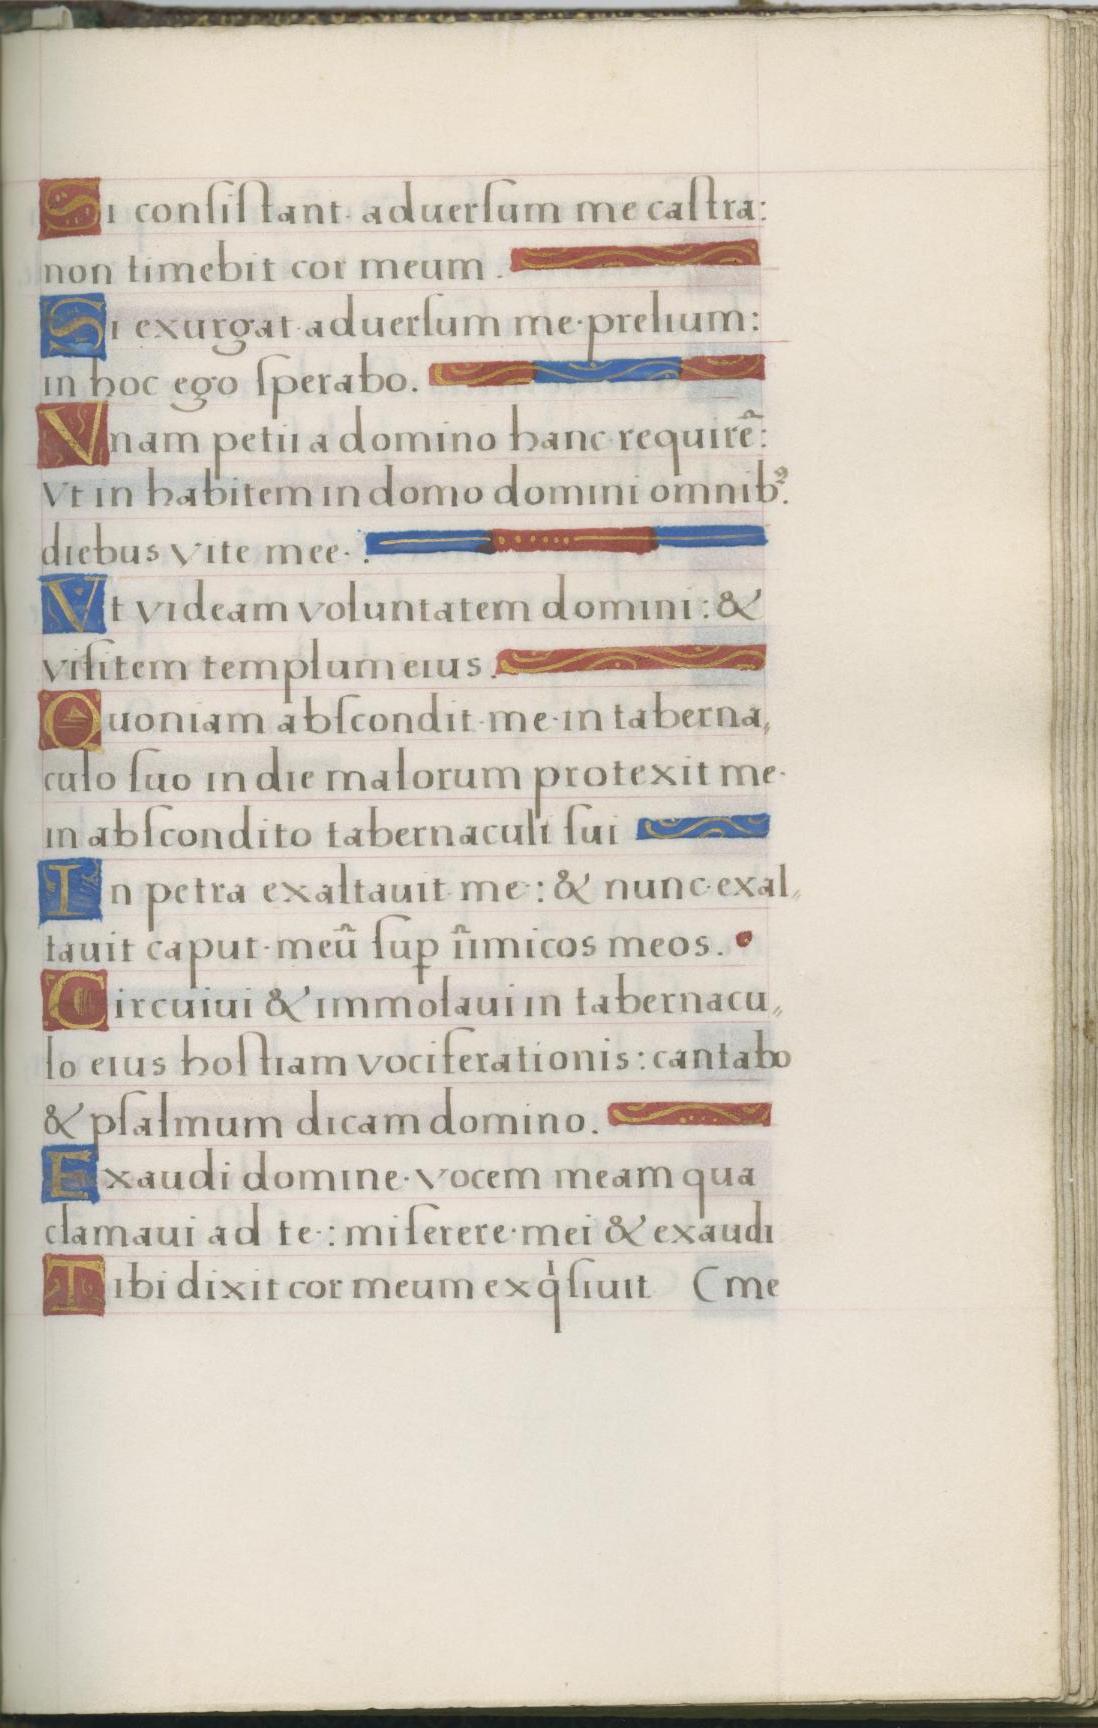 Si conſiſtant aduerſum me caſtra:
non timebit cor meum.
Si exurgat aduerſum me prelium:
in hoc ego ſperabo.
Vnam petii a domino hanc requirē:
Vt in habitem in domo domini omnibꝰ.
diebus vite mee.
Vt videam voluntatem domini: &
viſitem templum eius.
Quoniam abſcondit me in taberna„
culo ſuo in die malorum protexit me
in abſcondito tabernaculi ſui
In petra exaltauit me: & nunc exal„
tauit caput meū ſuꝑ īīmicos meos.
Circuiui & immolaui in tabernacu„
lo eius hoſtiam vociferationis: cantabo
& pſalmum dicam domino.
Exaudi domine vocem meam qua
clamaui ad te: miſerere mei & exaudi
Tibi dixit cor meum exqͥſiuit (me